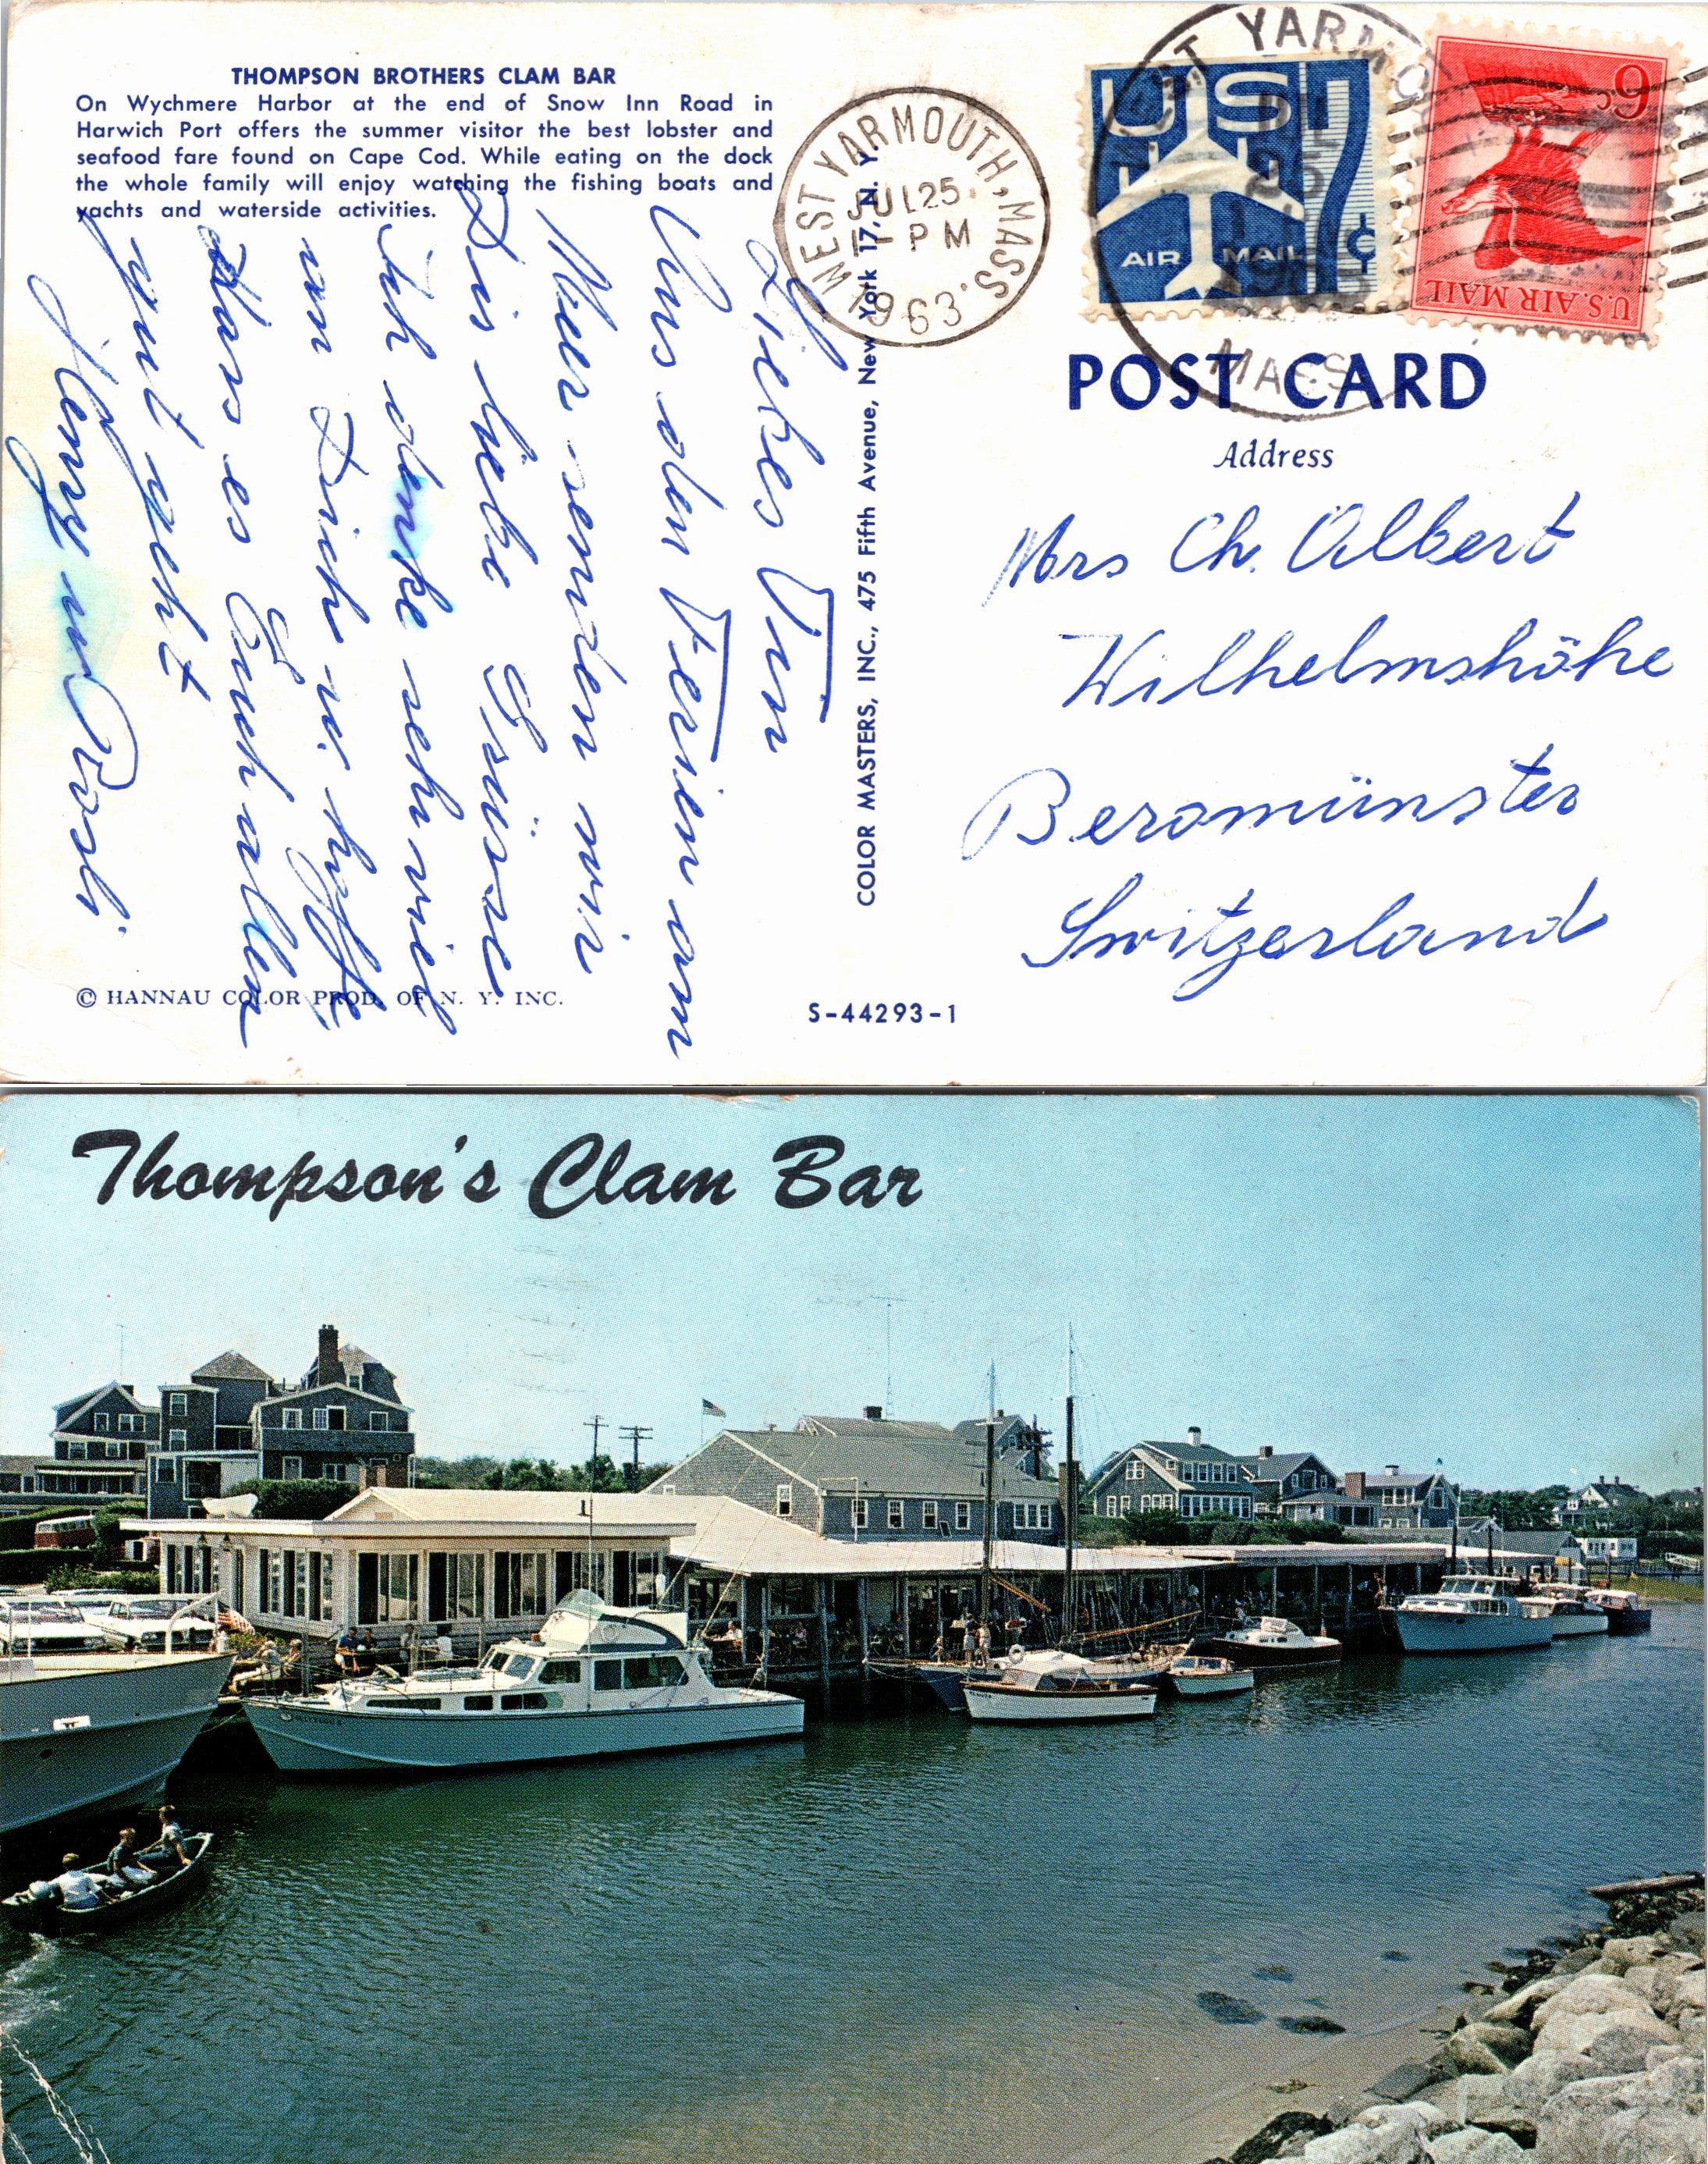 THOMPSON BROTHERS CLAM BAR
On Wychmere Harbor at the end of Snow Inn Road in
Harwich Port offers the summer visitor the best lobster and
seafood fare found on Cape Cod. While eating on the dock
the whole family will enjoy watching the fishing boats and
yachts and waterside activities.
Liebes
Aus den Ferien am
Meer senden wir
Dir liebe Grüsse
Ich denke sehr viel
an Dich u. hoffe,
dass es Euch allen
gut geht
Jenny u. Rosli
© HANNAU COLOR PROD. OF N. Y. INC.
COLOR MASTERS, INC., 475 Fifth Avenue, New York 17, N. Y.
S-44293-1
WEST YARMOUTH, MASS.
JUL 25
PM
1963
US
7¢
AIR MAIL
6c
U.S. AIR MAIL
YARMO
MASS
POST CARD
Address
Mrs Ch. Albert
Wilhelmshöhe
Beromünster
Switzerland
Thompson's Clam Bar